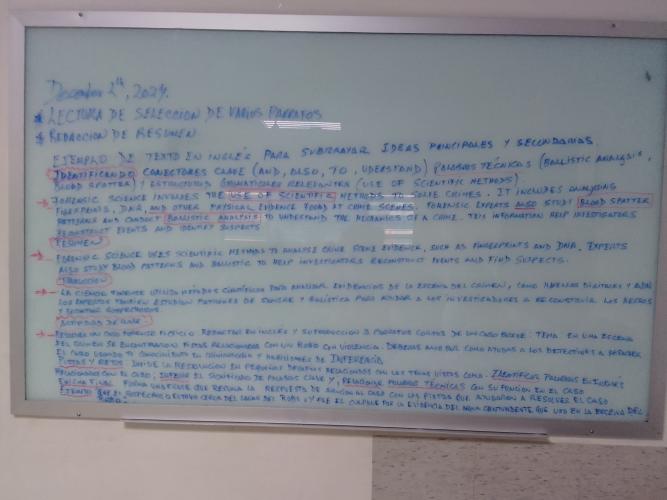 December 2th, 2024.
* LECTURA DE SELECCION DE VARIOS PARRAFOS
* REDACCION DE RESUMEN
EJEMPLO DE TEXTO EN INGLÉS PARA SUBRAYAR IDEAS PRINCIPALES Y SECUNDARIAS.
IDENTIFICANDO CONECTORES CLAVE (AND, ALSO, TO, UDERSTAND) PALABRAS TÉCNICAS (BALLISTIC ANALYSIS,
BLOOD SPATTER) Y ESTRUCTURAS GRAMATICALES RELEVANTES (USE OF SCIENTIFIC METHODS)
FORENSIC SCIENCE INVOLVES THE USE OF SCIENTIFIC METHODS TO SOLVE CRIMES. IT INCLUDES ANALYSING
FINGERPRINTS, DNA, AND OTHER PHYSICAL EVIDENCE FOUND AT CRIME SCENES. FORENSIC EXPERTS ALSO STUDY BLOOD SPATTER
PATTERNS AND CONDUCT BALLISTIC ANALYSIS TO UNDERSTAND THE MECHANICS OF A CRIME. THIS INFORMATION HELP INVESTIGATORS
RECONSTRUCT EVENTS AND IDENTIFY SUSPECTS
RESUMEN
FORENSIC SCIENCE USES SCIENTIFIC METHODS TO ANALYSE CRIME SCENE EVIDENCE, SUCH AS FINGERPRINTS AND DNA. EXPERTS
ALSO STUDY BLOOD PATTERNS AND BALLISTIC TO HELP INVESTIGATORS RECONSTRUCT EVENTS AND FIND SUSPECTS.
TRADUCCION
LA CIENCIA FORENSE UTILIZA METODOS CIENTIFICOS PARA ANALIZAR EVIDENCIAS DE LA ESCENA DEL CRIMEN, COMO HUELLAS DIGITALES Y ADN.
LOS EXPERTOS TAMBIEN ESTUDIAN PATRONES DE SANGRE Y BALISTICA PARA AYUDAR A LOS INVESTIGADORES A RECONSTRUIR LOS HECHOS
Y ENCONTRAR SOSPECHOSOS.
ACTIVIDAD DE CLASE:
UN CASO FORENSE FICTICIO REDACTAR EN INGLÉS Y SU TRADUCCION 3 PARRAFOS CORTOS DE UN CASO BREVE: TEMA: EN UNA ESCENA
DEL CRIMEN SE ENCUENTRAN PISTAS RELACIONADAS CON UN ROBO CON VIOLENCIA. DEBERAS ANALIZAR COMO AYUDAS A LOS DETECTIVES A RESOLVER
EL CASO USANDO TU CONOCIMIENTO EN CRIMINOLOGIA Y HABILIDADES DE INFERENCIA
PISTAS Y RETOS DIVIDE LA RESOLUCION EN PEQUEÑOS DESAFIOS RELACIONADOS CON LOS TEMAS VISTOS COMO: IDENTIFICAR PALABRAS EN INGLES
RELACIONADAS CON EL CASO, INFERIR EL SIGNIFICADO DE PALABRAS CLAVE Y, RELACIONAR PALABRAS TÉCNICAS CON SU FUNCION EN EL CASO
ENIGMA FINAL FORMA UNA FRASE QUE RESUMA LA RESPUESTA DE SOLUCION AL CASO CON LAS PISTAS QUE AYUDARON A RESOLVER EL CASO
EJEMPLO QUE EL SOSPECHOSO ESTUVO CERCA DEL LUGAR DEL ROBO, Y FUE EL CULPABLE POR LA EVIDENCIA DEL ARMA CONTUNDENTE QUE USO EN LA ESCENA DEL